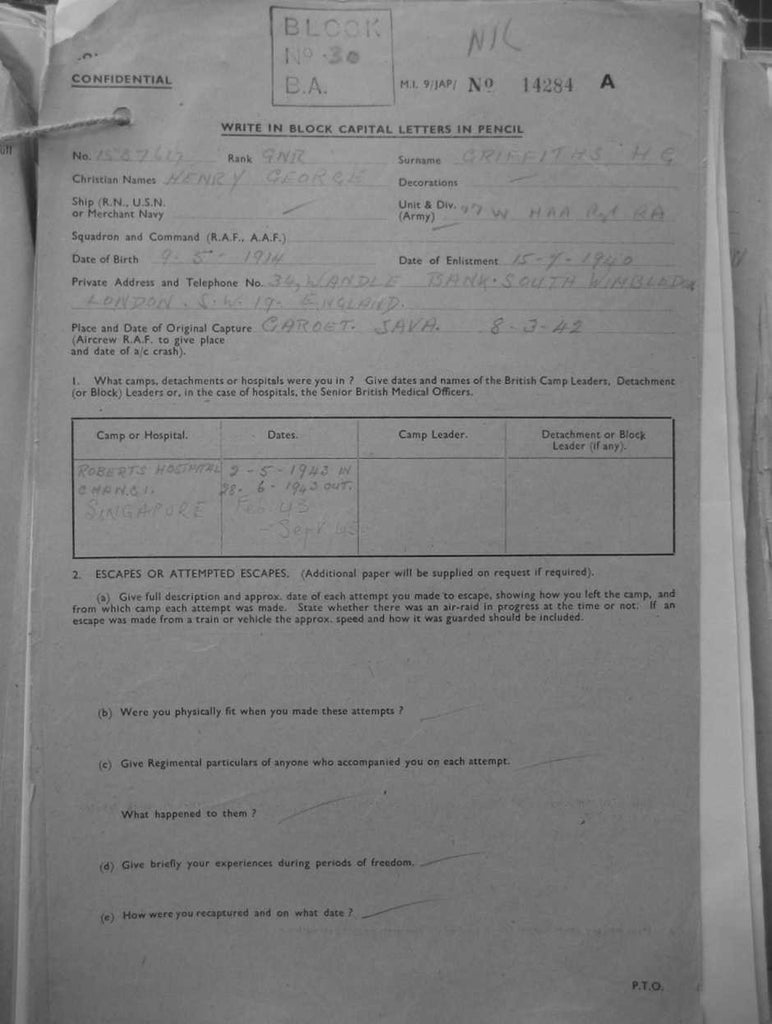 BLOCK
Nº 30
B.A.
NIL
CONFIDENTIAL
M.I. 9/JAP/ Nº 14284 A
WRITE IN BLOCK CAPITAL LETTERS IN PENCIL
No. Rank GNR Surname GRIFFITHS H G
Christian Names HENRY GEORGE Decorations
Ship (R.N., U.S.N. or Merchant Navy
Unit & Div. (Army) 77 W HAA Rgt RA
Squadron and Command (R.A.F., A.A.F.)
Date of Birth 9-5-1914 Date of Enlistment 15-7-1940
Private Address and Telephone No. 34, WANDLE BANK. SOUTH WIMBLEDON
LONDON. S.W. 19. ENGLAND.
Place and Date of Original Capture GAROET. JAVA. 8-3-42
(Aircrew R.A.F. to give place
and date of a/c crash).
1. What camps, detachments or hospitals were you in ? Give dates and names of the British Camp Leaders, Detachment
(or Block) Leaders or, in the case of hospitals, the Senior British Medical Officers.
Camp or Hospital. Dates. Camp Leader. Detachment or Block Leader (if any).
ROBERTS HOSPITAL 2-5-1943 IN
CHANGI. 28-6-1943 OUT.
SINGAPORE Feb 43
- Sept 45
2. ESCAPES OR ATTEMPTED ESCAPES. (Additional paper will be supplied on request if required).
(a) Give full description and approx. date of each attempt you made to escape, showing how you left the camp, and
from which camp each attempt was made. State whether there was an air-raid in progress at the time or not. If an
escape was made from a train or vehicle the approx. speed and how it was guarded should be included.
(b) Were you physically fit when you made these attempts ?
(c) Give Regimental particulars of anyone who accompanied you on each attempt.
What happened to them ?
(d) Give briefly your experiences during periods of freedom.
(e) How were you recaptured and on what date ?
P.T.O.